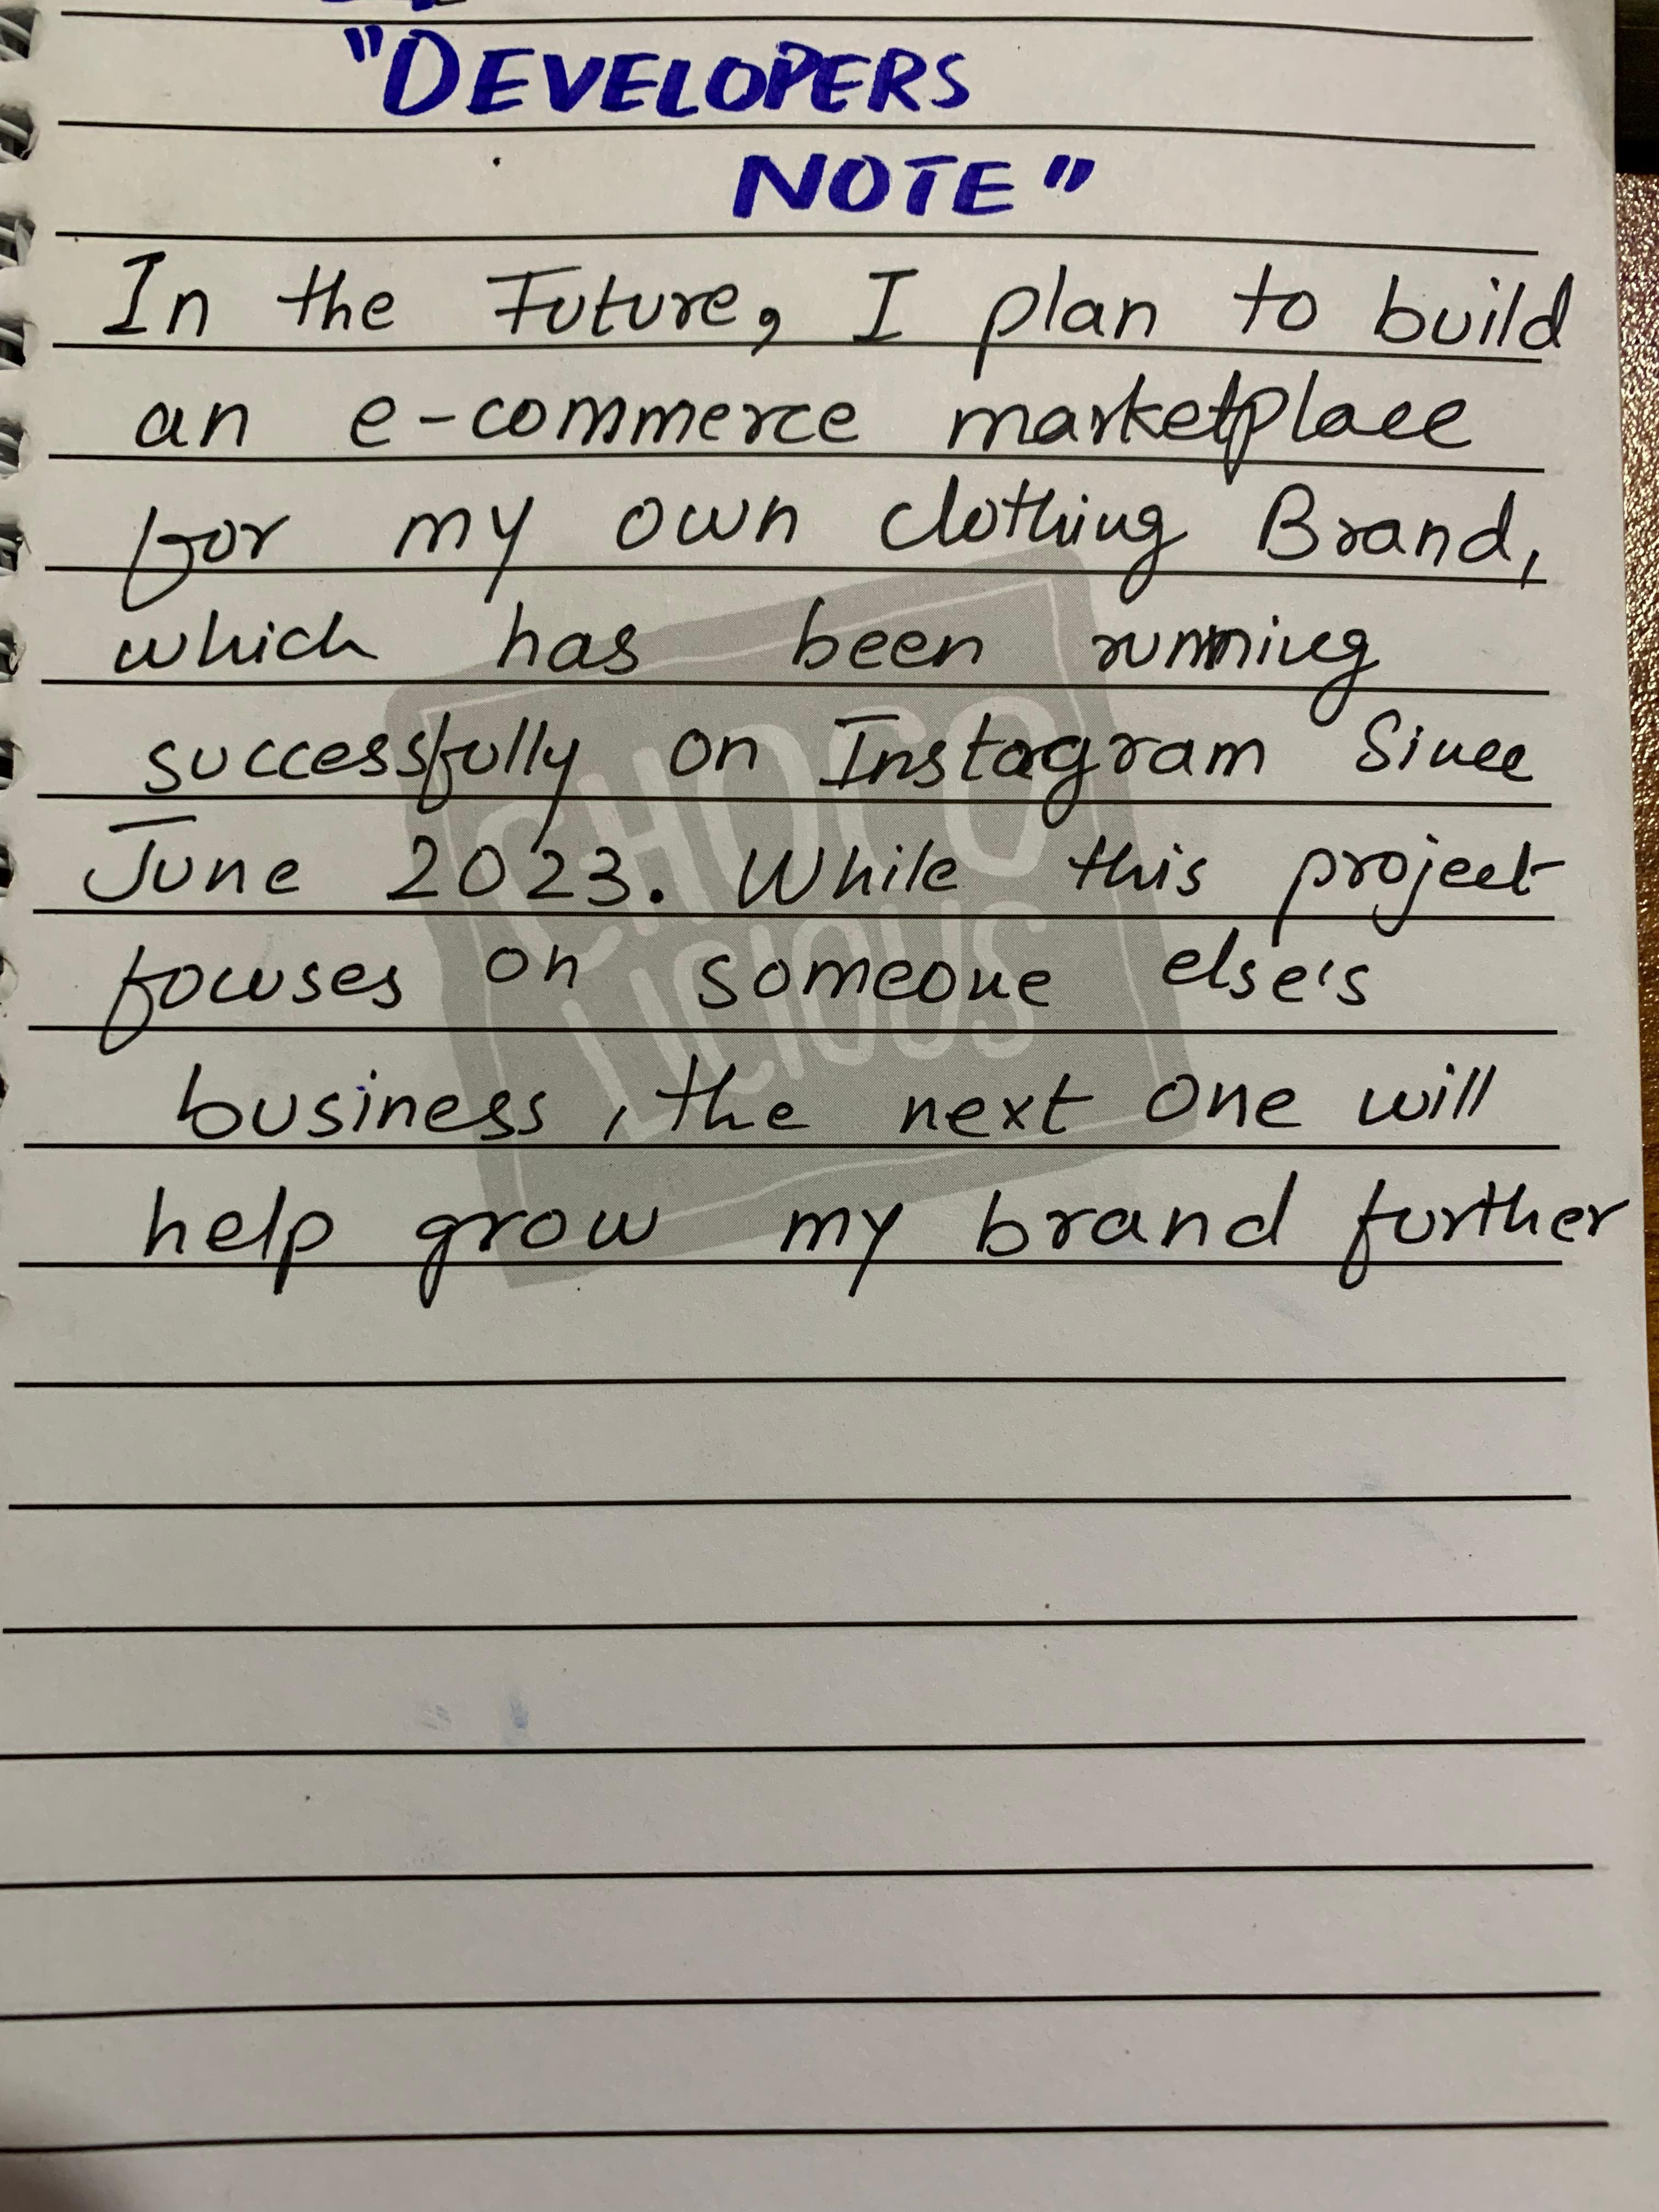 "DEVELOPERS
NOTE"
In the Future, I plan to build
an e-commerce marketplace
for my own clothing Brand,
which has been running
successfully on Instagram Since
June 2023. While this project
focuses on someone else's
business, the next one will
help grow my brand further
CHOCO
LICIOUS